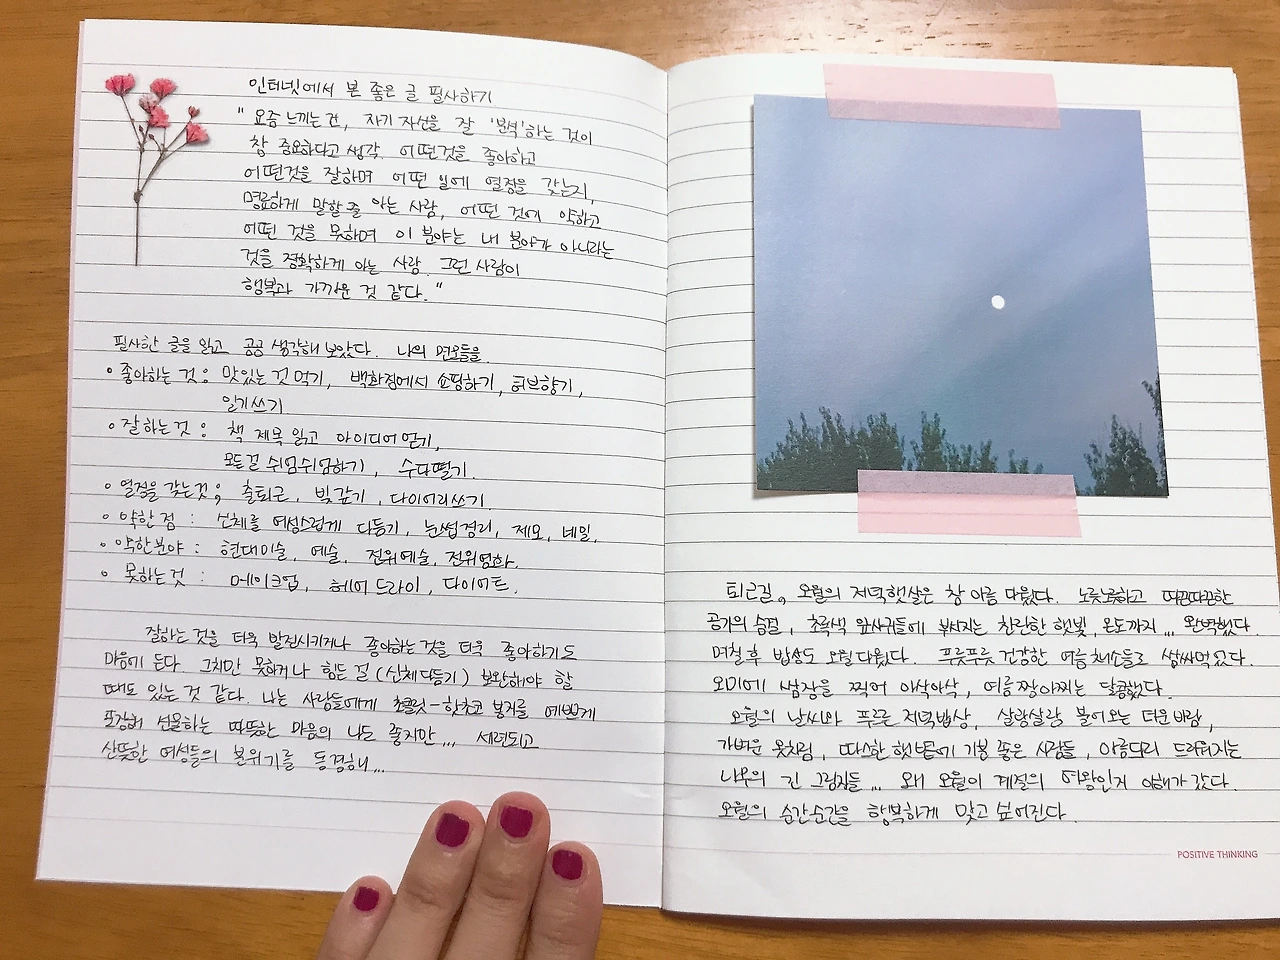 인터넷에서 본 좋은 글 필사하기
" 요즘 느끼는 건, 자기 자신을 잘 '분석'하는 것이
참 중요하다고 생각. 어떤것을 좋아하고
어떤것을 잘하며 어떤 일에 열정을 갖는지,
명료하게 말할 줄 아는 사람, 어떤 것에 약하고
어떤 것을 못하며 이 분야는 내 분야가 아니라는
것을 정확하게 아는 사람. 그런 사람이
행복과 가까운 것 같다. "
필사한 글을 읽고 곰곰 생각해 보았다. 나의 면모들을.
• 좋아하는 것 : 맛있는 것 먹기, 백화점에서 쇼핑하기, 허브향기,
일기쓰기
• 잘하는 것 : 책 제목 읽고 아이디어 얻기,
모든걸 쉬엄쉬엄하기, 수다떨기.
• 열정을 갖는것 : 출퇴근, 빚갚기, 다이어리쓰기.
• 약한 점 : 신체를 여성스럽게 다듬기, 눈썹정리, 제모, 네일.
• 약한분야 : 현대미술, 예술, 전위예술, 전위영화.
• 못하는 것 : 메이크업, 헤어 드라이, 다이어트.
잘하는 것을 더욱 발전시키거나 좋아하는 것을 더욱 좋아하기도
마음에 든다. 그치만 못하거나 힘든 걸 (신체다듬기) 보완해야 할
때도 있는 것 같다. 나는 사람들에게 초콜릿-핫초코 봉지를 예쁘게
포장해 선물하는 따뜻한 마음의 나도 좋지만... 세련되고
산뜻한 여성들의 분위기를 동경해...
퇴근길, 오월의 저녁햇살은 참 아름다웠다. 노릇노릇하고 따끈따끈한
공기의 숨결, 초록색 잎사귀들에 부서지는 찬란한 햇빛, 온도까지... 완벽했다.
며칠 후 밥상도 오월다웠다. 푸릇푸릇 건강한 여름 채소들로 쌈싸먹었다.
오이에 쌈장을 찍어 아삭아삭, 여름 짱아찌는 달콤했다.
오월의 날씨와 푸르른 저녁밥상, 살랑살랑 불어오는 더운 바람,
가벼운 옷차림, 따스한 햇볕에 기분 좋은 사람들, 아름다리 드리워지는
나무의 긴 그림자들... 왜 오월이 계절의 여왕인지 이해가 갔다.
오월의 순간순간을 행복하게 맞고 싶어진다.
POSITIVE THINKING